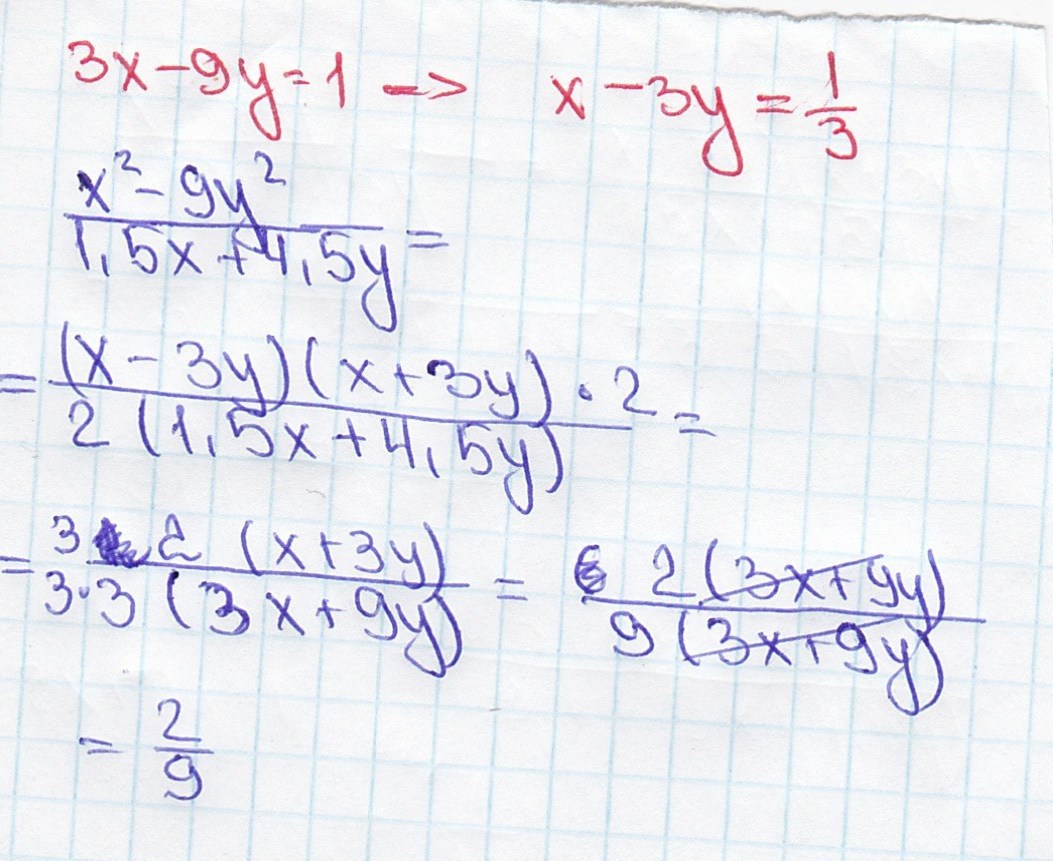 3x-9y=1 -> x-3y=1/3
(x²-9y²)/(1,5x+4,5y)=
=((x-3y)(x+3y)·2)/(2(1,5x+4,5y))=
=(3 2(x+3y))/(3·3(3x+9y))=(2(3x+9y))/(9(3x+9y))
=2/9